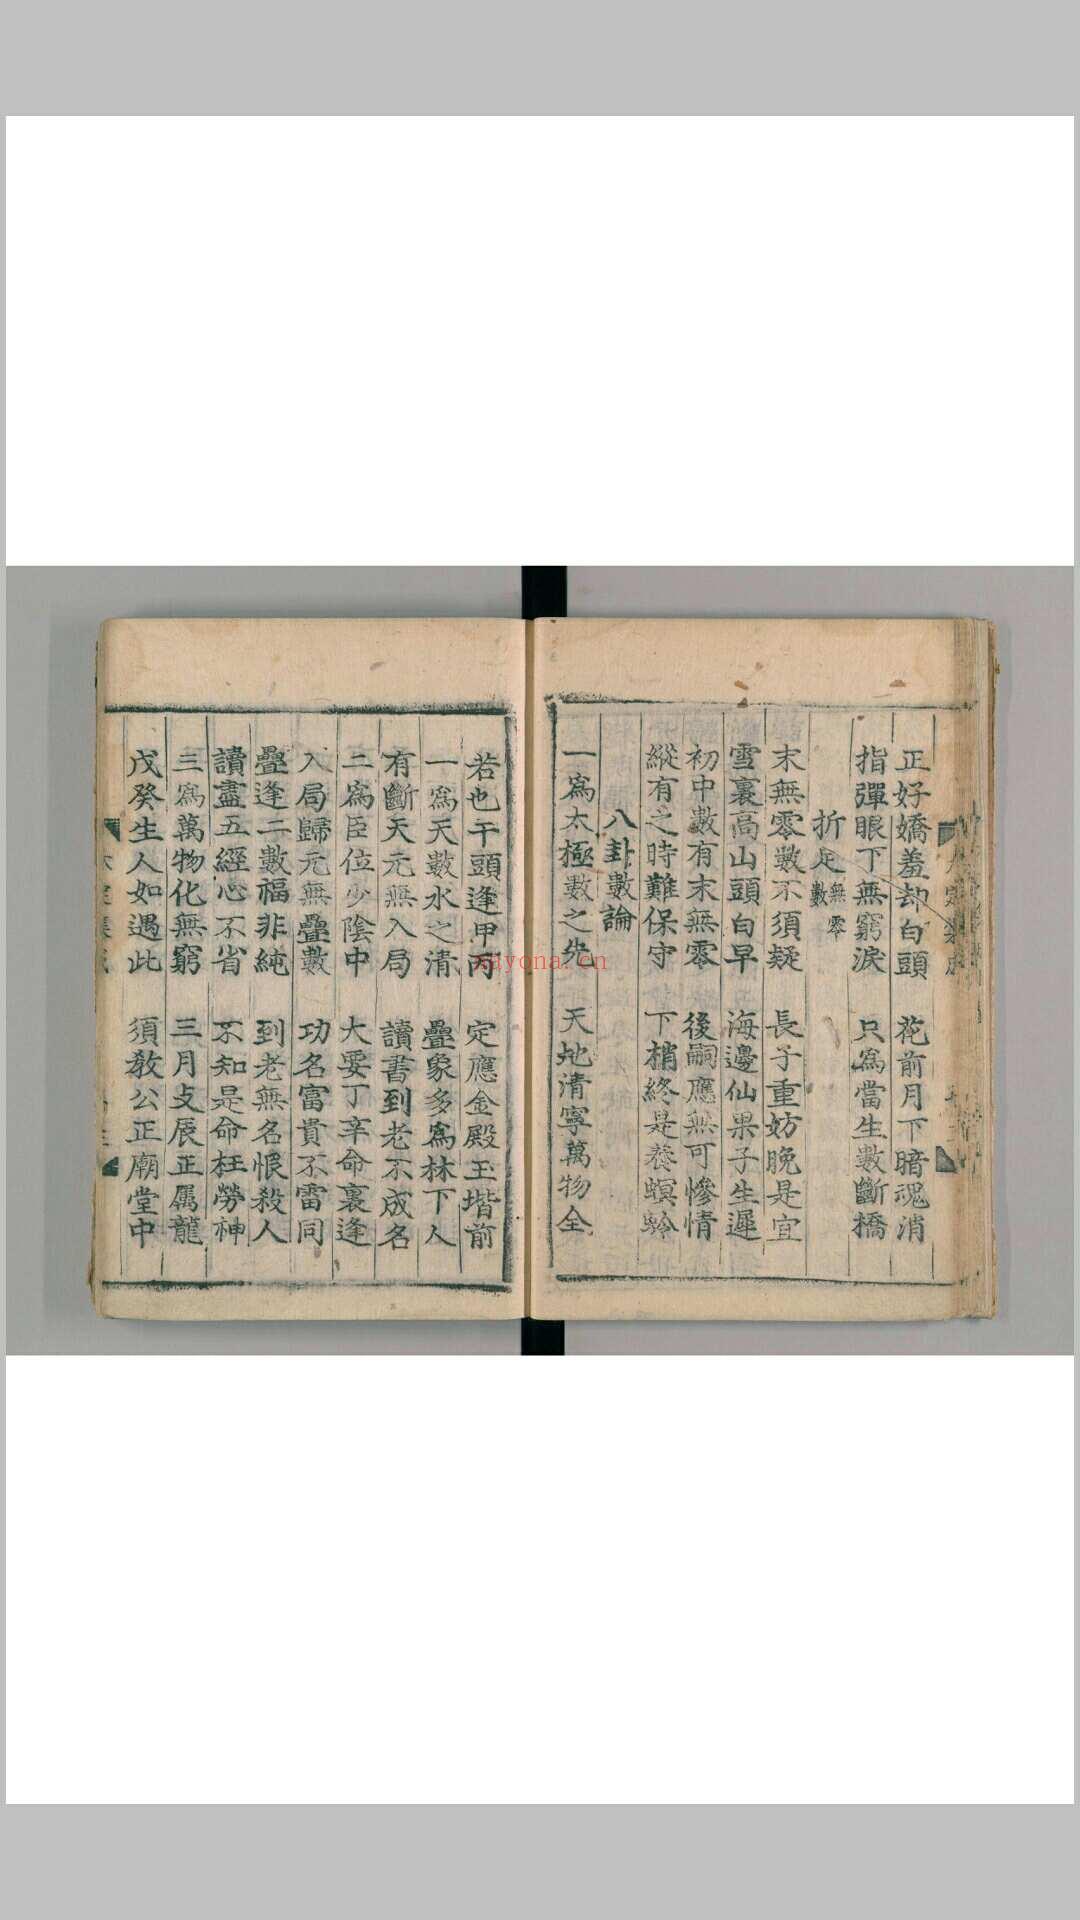 正好嬌羞却白頭　花前月下暗魂消
指彈眼下無窮淚　只爲當生數斷橋
折足無零數
末無零數不須疑　長子重妨晚是宜
雪裏高山頭白早　海邊仙果子生遲
初中數有末無零　後嗣應無可慘情
縱有之時難保守　下稍終是養螟蛉
八卦數論
一爲太極數之先　天地清寧萬物全
若也干頭逢甲丙　定應金殿玉堦前
一爲天數水之清　疊象多爲林下人
有斷天元無入局　讀書到老不成名
二爲臣位少陰中　大要丁辛命裏逢
入局歸元無疊數　功名富貴不雷同
疊逢二數福非純　到老無名恨殺人
讀盡五經心不省　不知是命枉勞神
三爲萬物化無窮　三月支辰正属龍
戊癸生人如遇此　須教公正廟堂中